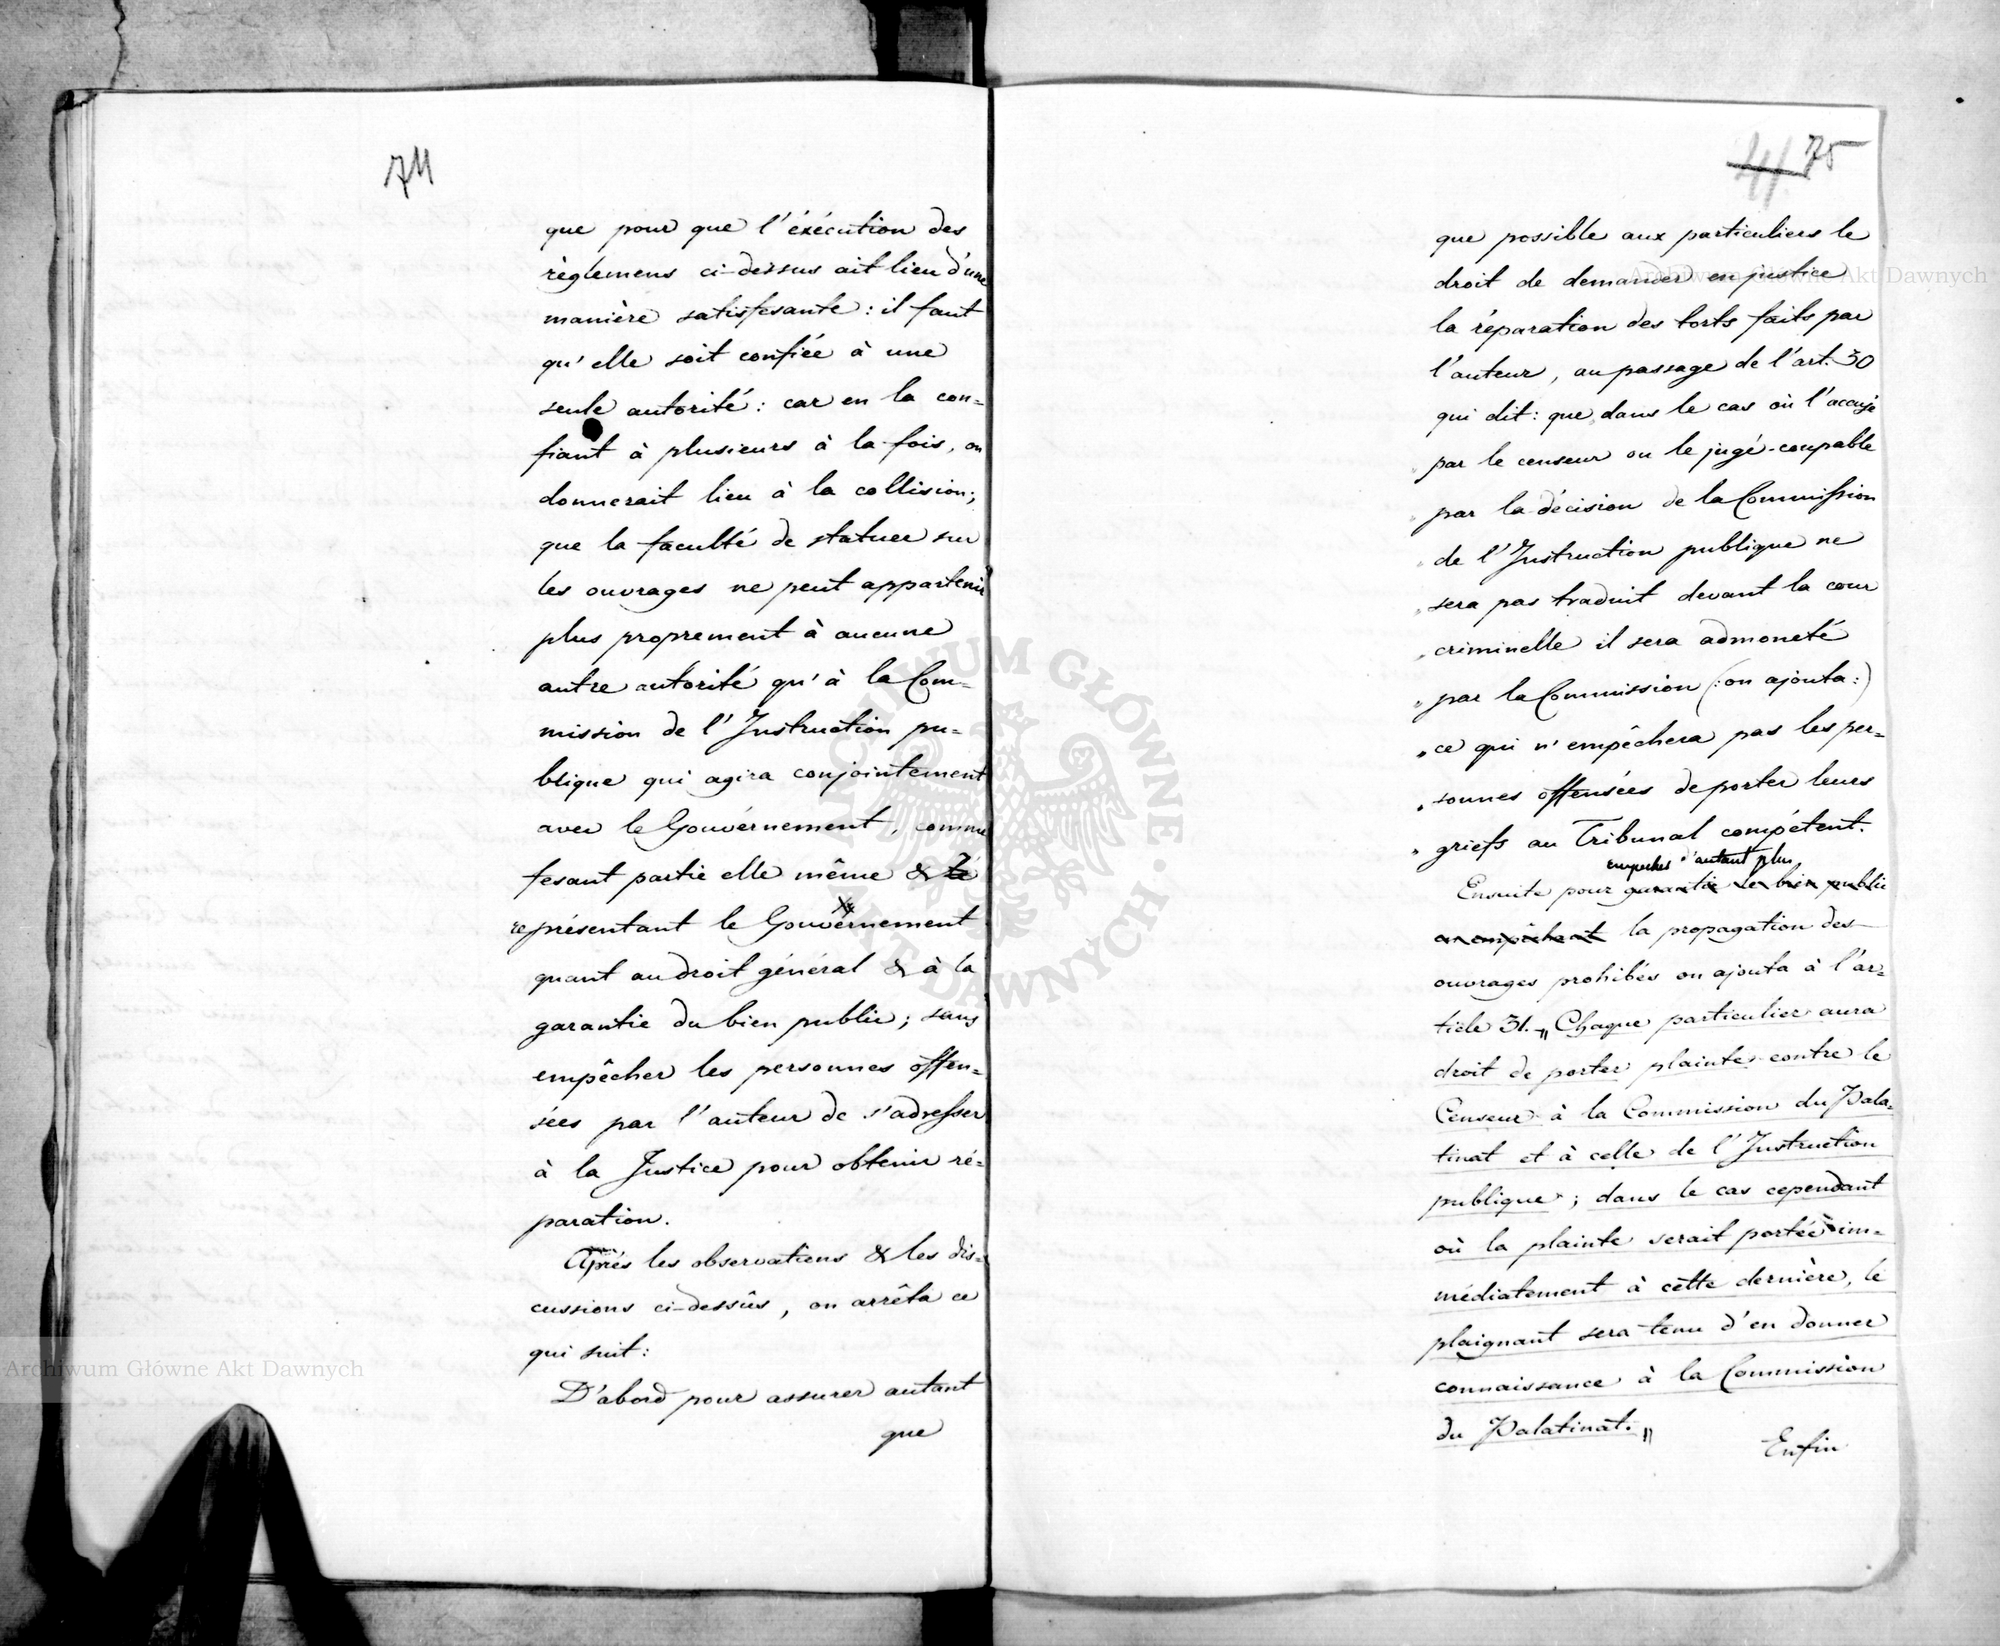 74
que pour que l'éxécution des
règlemens ci-dessus ait lieu d'une
manière satisfesante : il faut
qu'elle soit confiée à une
seule autorité : car en la con=
fiant à plusieurs à la fois, on
donnerait lieu à la collision;
que la faculté de statuer sur
les ouvrages ne peut appartenir
plus proprement à aucune
autre autorité qu'à la Com=
mission de l'Instruction pu=
blique qui agira conjointement
avec le Gouvérnement, comme
fesant partie elle même &
représentant le Gouvérnement
quant au droit général & à la
garantie du bien public; sans
empêcher les personnes offen=
sées par l'auteur de s'adresser
à la Justice pour obtenir ré=
paration.
Après les observations & les dis=
cussions ci-dessûs, on arrêta ce
qui suit:
D'abord pour assurer autant
que
41. 75
que possible aux particuliers le
droit de demander en justice
la réparation des torts faits par
l'auteur, au passage de l'art. 30
qui dit: que „dans le cas où l'accusé
„ par le censeur ou le jugé-coupable
„ par la décision de la Commission
„ de l'Instruction publique ne
„ sera pas traduit devant la cour
„ criminelle il sera admoneté
„ par la Commission (: on ajouta :)
„ ce qui n'empêchera pas les per=
„ sonnes offensées de porter leurs
„ griefs au Tribunal compétent.
empecher d'autant plus
Ensuite pour garantir le bien public
en empêchant la propagation des
ouvrages prohibés on ajouta à l'ar=
ticle 31. „Chaque particulier aura
droit de porter plainte contre le
Censeur à la Commission du Pala=
tinat et à celle de l'Instruction
publique; dans le cas cependant
où la plainte serait portée im=
médiatement à cette dernière, le
plaignant sera tenu d'en donner
connaissance à la Commission
du Palatinat.„
Enfin
Archiwum Główne Akt Dawnych
Archiwum Główne Akt Dawnych
ARCHIWUM GŁÓWNE AKT DAWNYCH